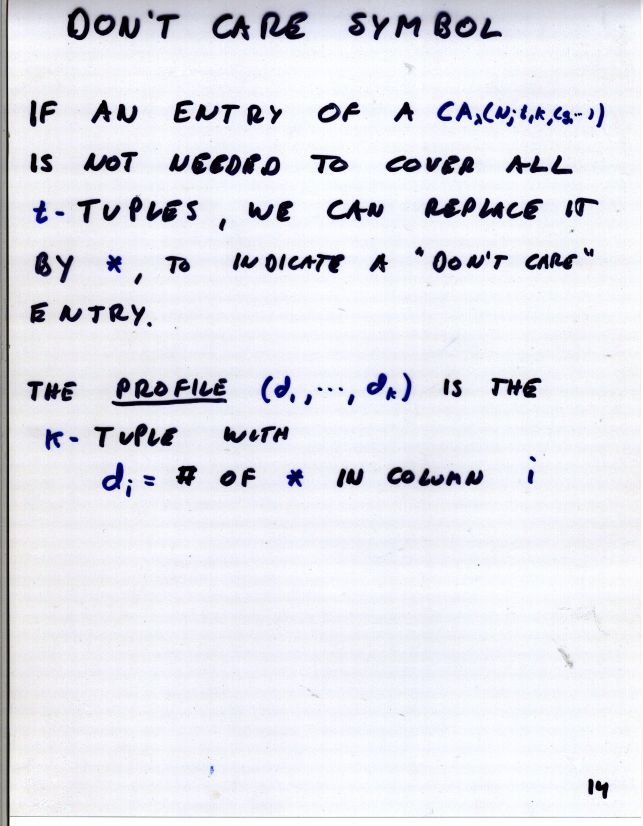 DON'T CARE SYMBOL
IF AN ENTRY OF A CAλ(N;t,k,(g,...))
IS NOT NEEDED TO COVER ALL
t-TUPLES, WE CAN REPLACE IT
BY *, TO INDICATE A "DON'T CARE"
ENTRY.
THE PROFILE (d₁,...,dₖ) IS THE
K-TUPLE WITH
dᵢ = # OF * IN COLUMN i
14